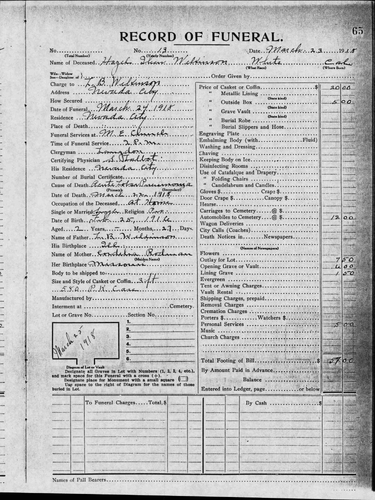 65
RECORD OF FUNERAL.
No. 13 Date, March 23 1918
(Total Number) (Yearly Number)
Name of Deceased, Hazel Wilkinson White Cal
(What Race) (Where Born)
Charge to L. B. Wilkinson
Address Nevada City
How Secured
Date of Funeral, March 24, 1918
Residence Nevada City
Place of Death
Funeral Services at M. E. Church
Time of Funeral Service, 2 P.M.
Clergyman,
Certifying Physician
His Residence, Nevada City
Number of Burial Certificate
Cause of Death Acute Lobar Pneumonia
Date of Death, March 22 1918
Occupation of the Deceased, At Home
Single or Married, Single Religion
Date of Birth, Feb. 25, 1916
Aged, 2 Years, Months, 27 Days.
Name of Father, L. B. Wilkinson
His Birthplace
Name of Mother, Rodman
(Maiden Name)
Her Birthplace, Missouri
Body to be shipped to
Size and Style of Casket or Coffin, 3 1/2 ft
Manufactured by
Interment at Cemetery.
Lot or Grave No. Section No.
1
2
3
4
5
6
7
8
March 25 1918
Diagram of Lot or Vault
Designate all Graves in Lot with Numbers (1, 2, 3, 4, etc.),
and mark space for this Funeral with a cross (+).
Designate place for Monument with a small square
Use space to the right of Diagram for the names of those
buried in Lot.
Order Given by
Price of Casket or Coffin $ 20 00
" Metallic Lining
" Outside Box 5 00
" Grave Vault
" Burial Robe
" Burial Slippers and Hose
Engraving Plate
Embalming Body (with Fluid)
Washing and Dressing
Shaving
Keeping Body on Ice
Disinfecting Rooms
Use of Catafalque and Drapery
" Folding Chairs
" Candelabrum and Candles
Gloves $ Crape $
Hearse
Carriages to Cemetery @ $
Automobiles to Cemetery @ $ 12 00
Wagon Deliveries
City Calls (Coaches)
Death Notices in Newspapers
(Names of Newspapers)
Flowers
Outlay for Lot 7 50
Opening Grave or Vault 6 00
Lining Grave 1 50
Evergreen
Tent or Awning Charges
Vault Rental
Shipping Charges, prepaid
Removal Charges
Cremation Charges
Porters $ Watchers $
Personal Services 5 00
Music
Church Charges
Total Footing of Bill $ 57 00
By Amount Paid in Advance
Balance
Entered into Ledger, page or below.
To Funeral Charges Total, $ By Cash $
Names of Pall Bearers